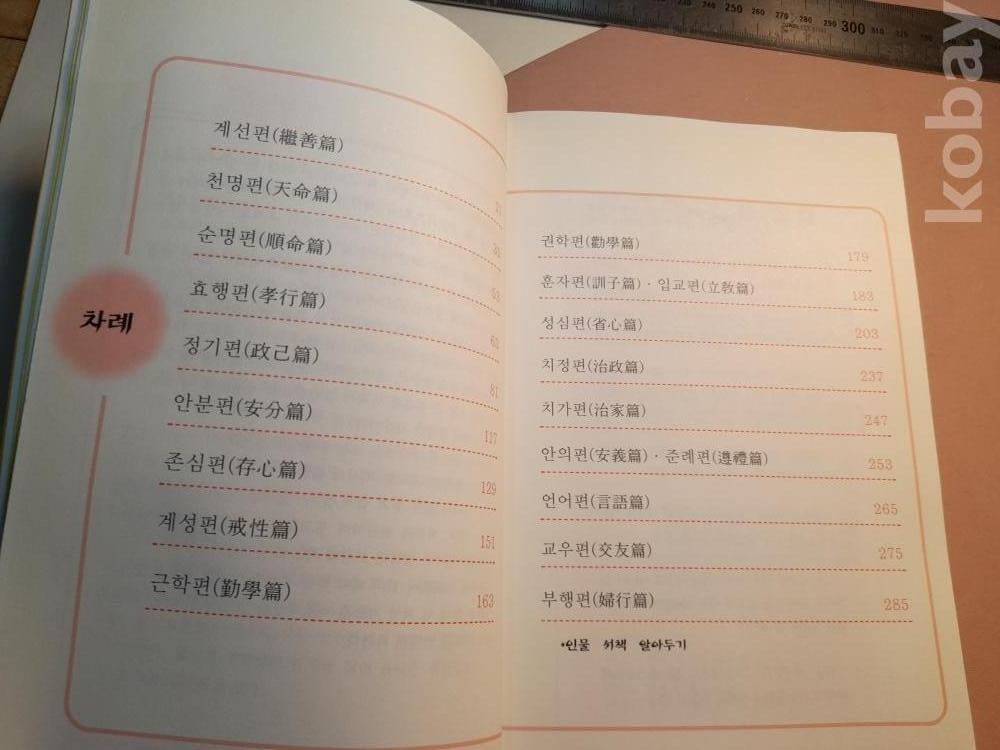 차례
계선편(繼善篇)
천명편(天命篇)
순명편(順命篇)
효행편(孝行篇)
정기편(政己篇) 81
안분편(安分篇) 117
존심편(存心篇) 129
계성편(戒性篇) 151
근학편(勤學篇) 163
권학편(勸學篇) 179
훈자편(訓子篇)·입교편(立敎篇) 183
성심편(省心篇) 203
치정편(治政篇) 237
치가편(治家篇) 247
안의편(安義篇)·준례편(遵禮篇) 253
언어편(言語篇) 265
교우편(交友篇) 275
부행편(婦行篇) 285
•인물 서책 알아두기
250 260 270 280 290 300 310
kobay